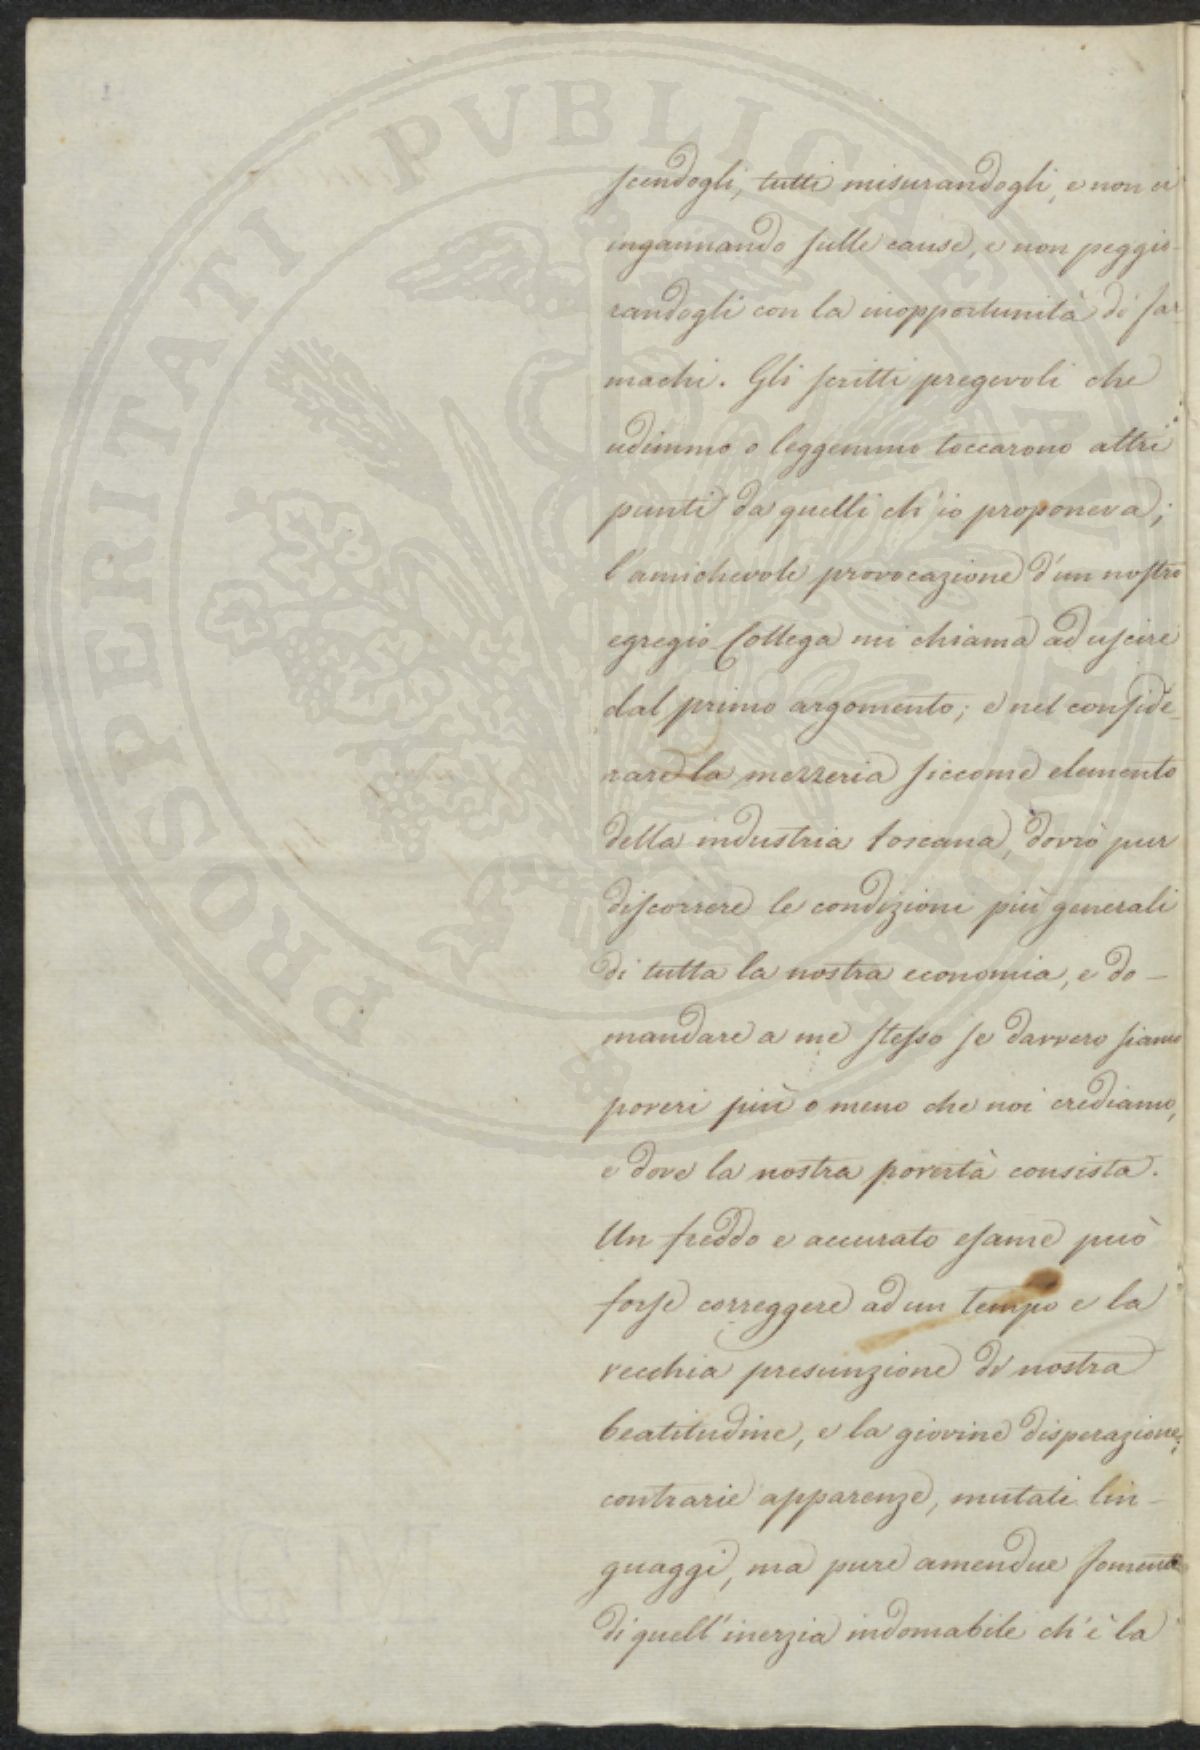 scendogli, tutti misurandogli, e non ci
ingannando sulle cause, e non peggio-
randogli con la inopportunità di far-
machi. Gli scritti pregevoli che
udimmo o leggemmo toccarono altri
punti da quelli ch'io proponeva;
l'amichevole provocazione d'un nostro
egregio Collega mi chiama ad uscire
dal primo argomento; e nel conside-
rare la mezzeria siccome elemento
della industria toscana, dovrò pur
discorrere le condizioni più generali
di tutta la nostra economia, e do-
mandare a me stesso se davvero siamo
poveri più o meno che noi crediamo,
e dove la nostra povertà consista.
Un freddo e accurato esame può
forse correggere ad un tempo e la
vecchia presunzione di nostra
beatitudine, e la giovine disperazione;
contrarie apparenze, mutati lin-
guaggi, ma pure amendue fomento
di quell'inerzia indomabile ch'è la
PROSPERITATI PVBLICAE AVGENDAE